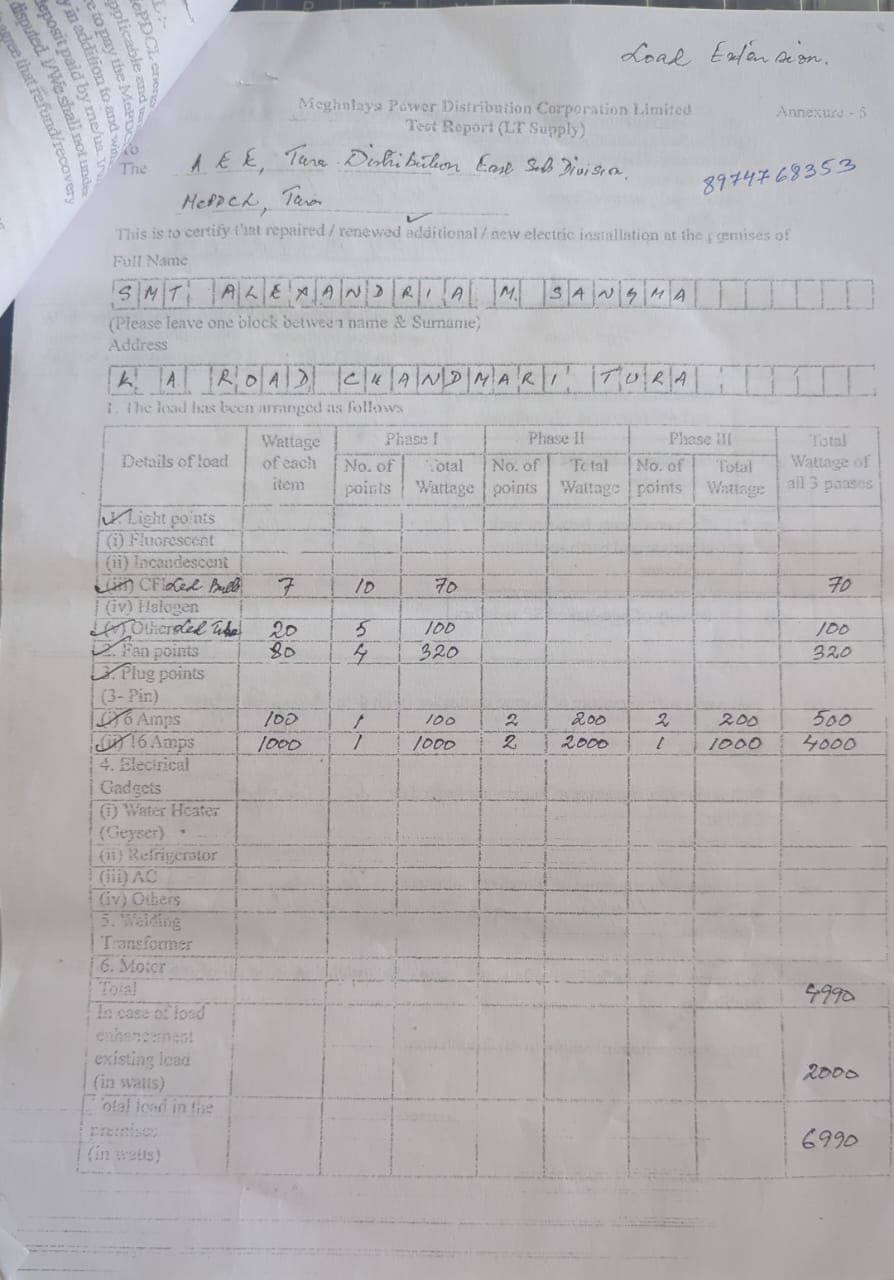 Load Extension.
Meghalaya Power Distribution Corporation Limited
Annexure - 5
Test Report (LT Supply)
The A E E, Tura Distribution East Sub Division.
8974768353
MePDCL, Tura
This is to certify that repaired / renewed additional / new electric installation at the premises of
Full Name
SMT ALEXANDRIA M. SANGMA
(Please leave one block between name & Surname)
Address
K A ROAD CHANDMARI TURA
1. The load has been arranged as follows
Details of load | Wattage of each item | Phase I | Phase II | Phase III | Total Wattage of all 3 phases
No. of points | Total Wattage | No. of points | Total Wattage | No. of points | Total Wattage
1. Light points
(i) Fluorescent
(ii) Incandescent
(iii) CFL Led Bulb 7 10 70 70
(iv) Halogen
(v) Other Led Tube 20 5 100 100
2. Fan points 80 4 320 320
3. Plug points
(3- Pin)
(i) 6 Amps 100 1 100 2 200 2 200 500
(ii) 16 Amps 1000 1 1000 2 2000 1 1000 4000
4. Electrical
Gadgets
(i) Water Heater
(Geyser)
(ii) Refrigerator
(iii) AC
(iv) Others
5. Welding
Transformer
6. Motor
Total 4990
In case of load
enhancement
existing load
(in watts) 2000
Total load in the
premises
(in watts) 6990